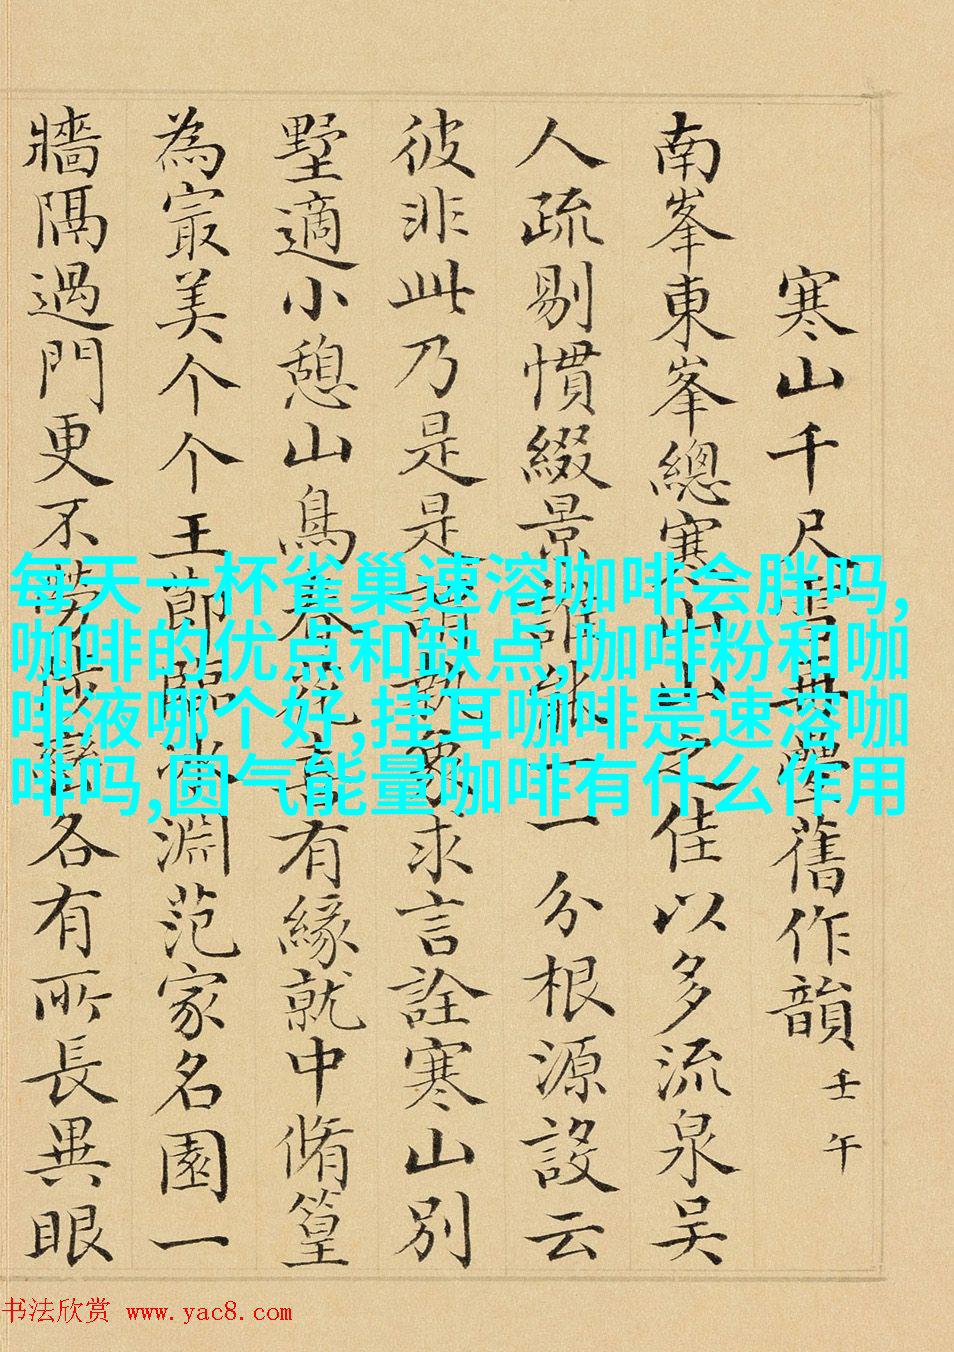 寒山千尺雪再疊舊作韻 壬午
南峯東峯總寒山山之佳以多流泉吳
人疏剔慣綴景誰能一一分根源設云
彼非此乃是是謂執象求言詮寒山別
墅適小憩山鳥春花言有緣就中脩篁
為冣美个个王莭臨淵范家名園一
牆隔過門更不勞各有所長異眼
每天一杯雀巢速溶咖啡会胖吗,
咖啡的优点和缺点,咖啡粉和咖
啡液哪个好,挂耳咖啡是速溶咖
啡吗,圆气能量咖啡有什么作用
书法欣赏 www.yac8.com